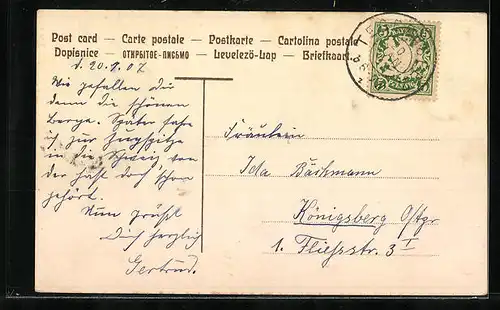 Post card — Carte postale — Postkarte — Cartolina postale
Dopisnice — ОТКРЫТОЕ-ПИСЬМО — Levelező-Lap — Briefkaart
d. 20.9.07
Wie gefallen Dir
denn die schönen
Berge. Später fahre
ich zur Zugspitze
in die Schweiz, von
der hast doch schon
gehört.
Nun grüßt
Dich herzlich
Gertrud.
Fräulein
Ida Bäckmann
Königsberg Ostpr
1. Fliessstr. 3 I